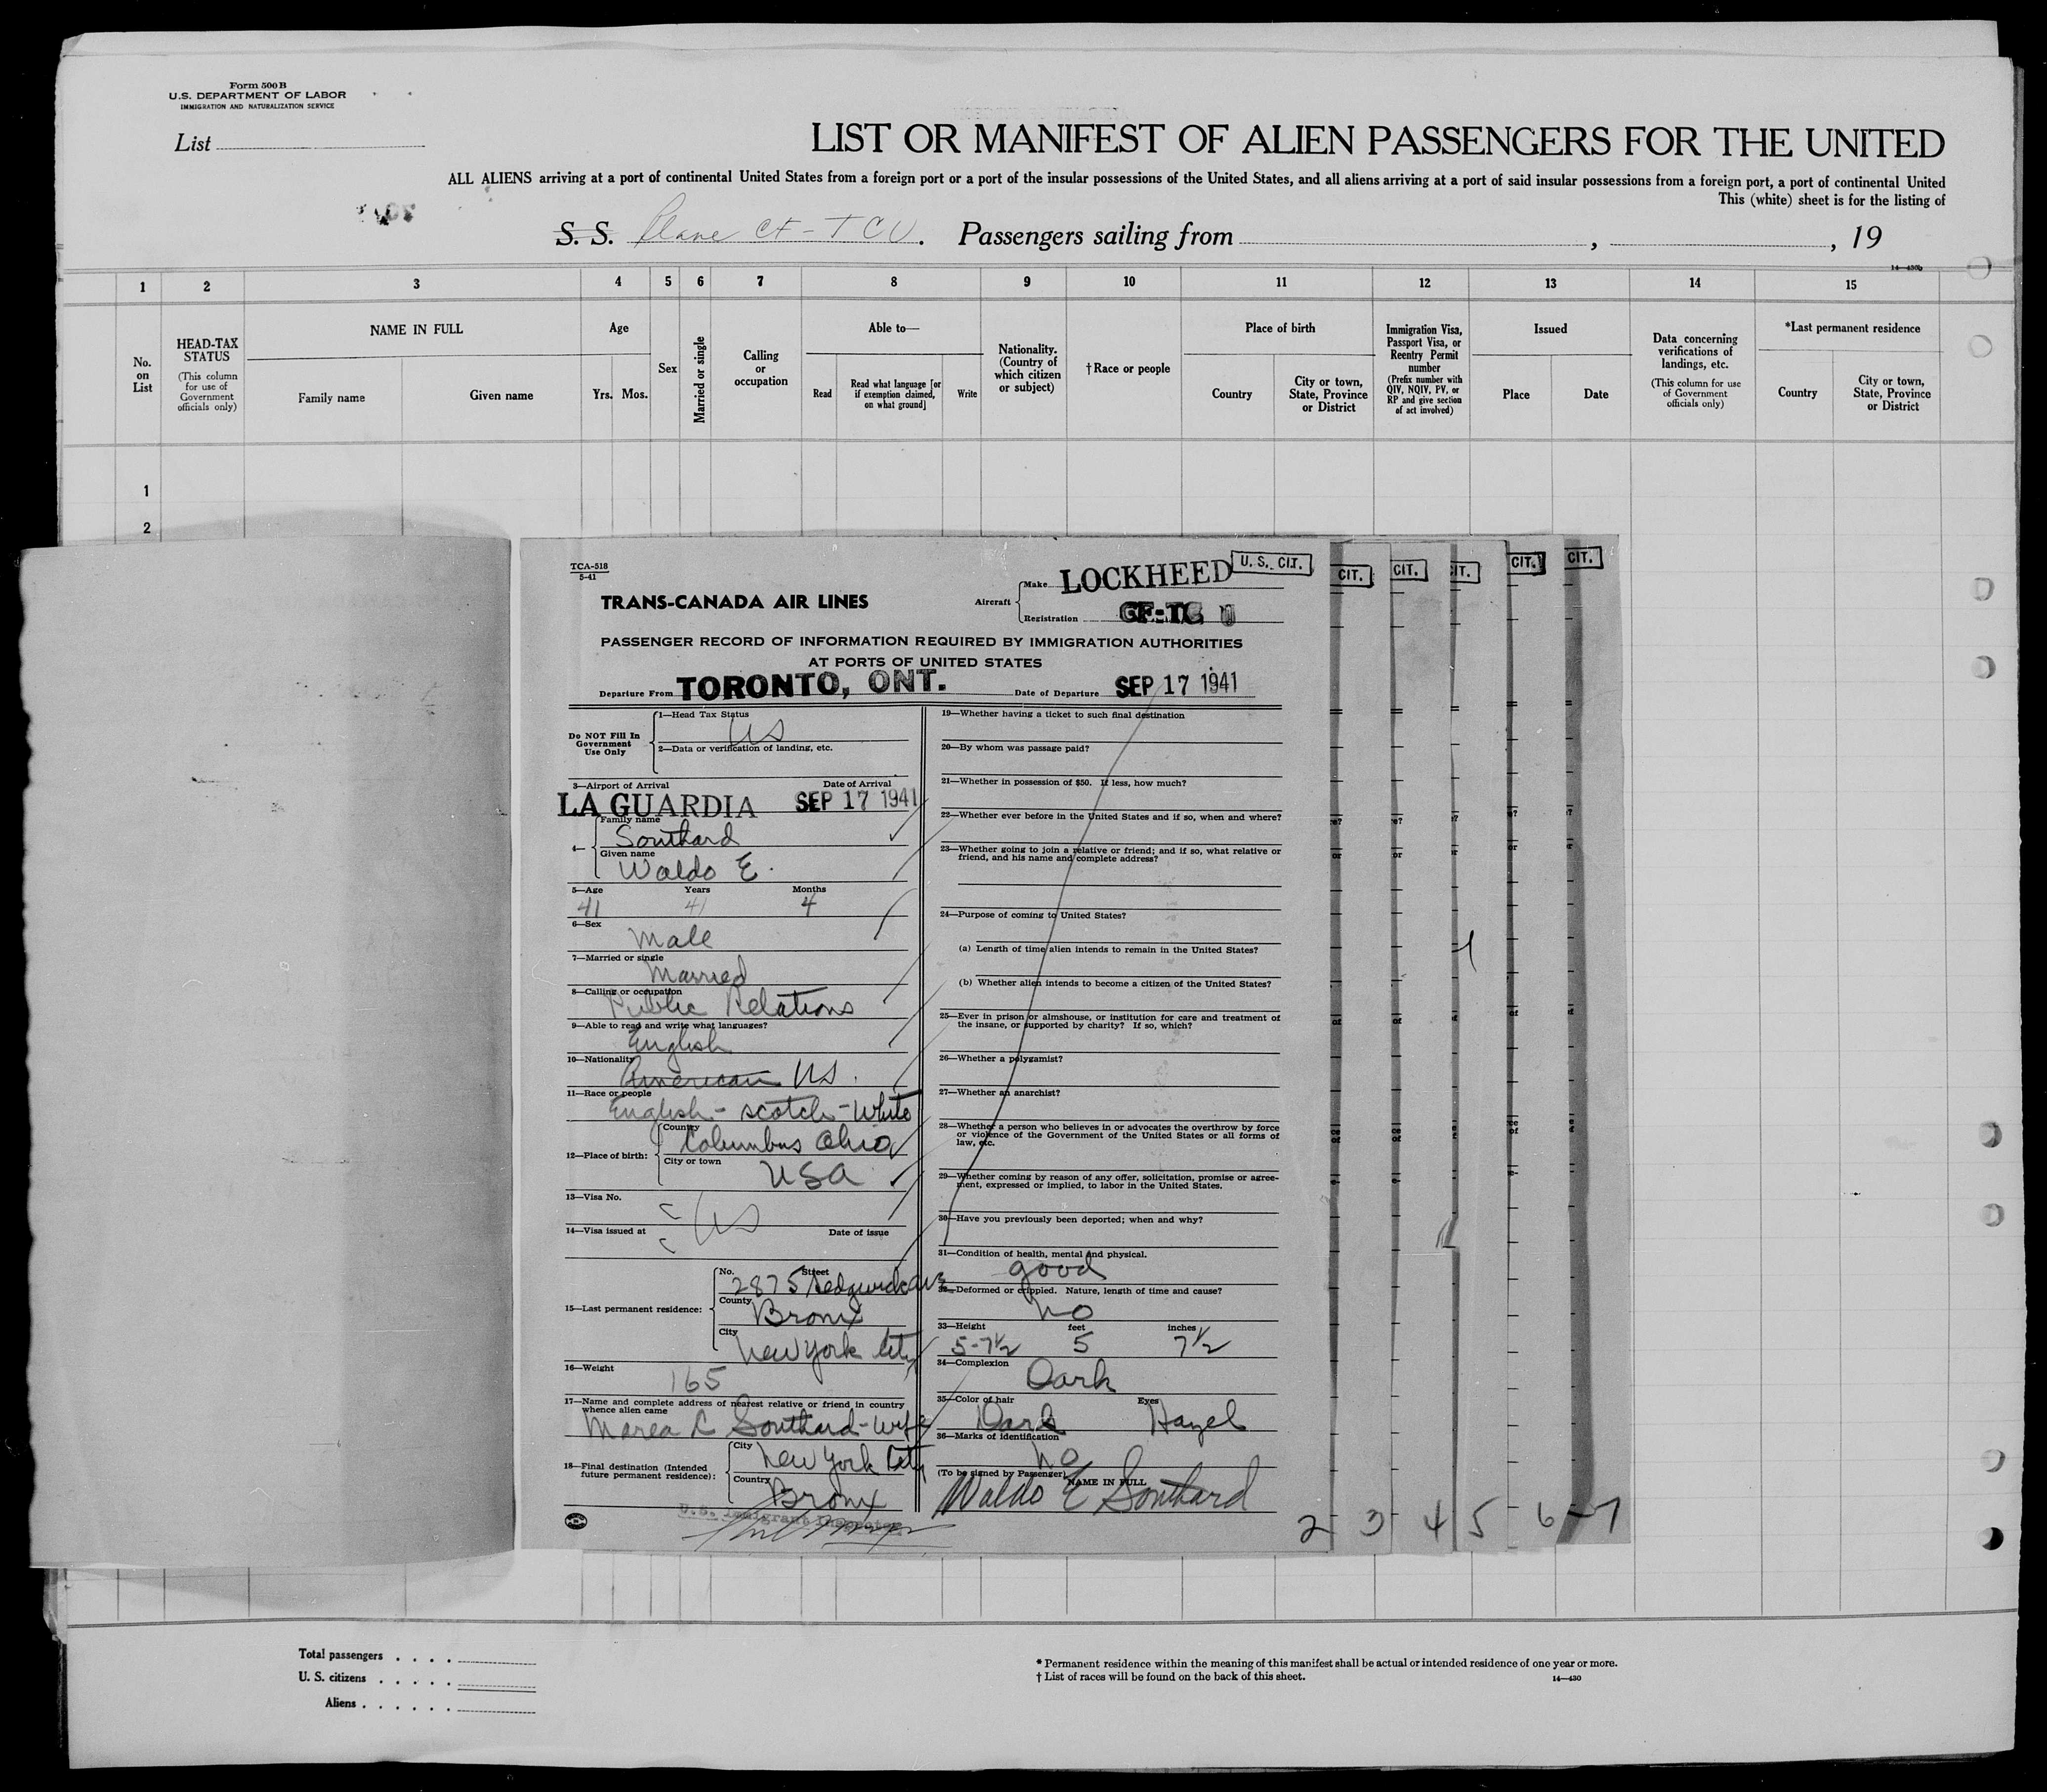 Form 500 B
U.S. DEPARTMENT OF LABOR
IMMIGRATION AND NATURALIZATION SERVICE
List
LIST OR MANIFEST OF ALIEN PASSENGERS FOR THE UNITED
ALL ALIENS arriving at a port of continental United States from a foreign port or a port of the insular possessions of the United States, and all aliens arriving at a port of said insular possessions from a foreign port, a port of continental United
This (white) sheet is for the listing of
S. S. Plane CF-TCU. Passengers sailing from , , 19
14—430b
1 2 3 4 5 6 7 8 9 10 11 12 13 14 15
No. on List
HEAD-TAX STATUS
(This column for use of Government officials only)
NAME IN FULL
Family name Given name
Age
Yrs. Mos.
Sex
Married or single
Calling or occupation
Able to—
Read
Read what language [or if exemption claimed, on what ground]
Write
Nationality. (Country of which citizen or subject)
†Race or people
Place of birth
Country
City or town, State, Province or District
Immigration Visa, Passport Visa, or Reentry Permit number
(Prefix number with QIV, NQIV, PV, or RP and give section of act involved)
Issued
Place Date
Data concerning verifications of landings, etc.
(This column for use of Government officials only)
*Last permanent residence
Country
City or town, State, Province or District
1
2
TCA-518
5-41
TRANS-CANADA AIR LINES
Aircraft
Make LOCKHEED
Registration CF-TC U
U. S. CIT.
CIT. CIT. IT. CIT. CIT.
PASSENGER RECORD OF INFORMATION REQUIRED BY IMMIGRATION AUTHORITIES
AT PORTS OF UNITED STATES
Departure From TORONTO, ONT. Date of Departure SEP 17 1941
Do NOT Fill In Government Use Only
1—Head Tax Status
US
2—Data or verification of landing, etc.
3—Airport of Arrival Date of Arrival
LA GUARDIA SEP 17 1941
4—
Family name
Southard
Given name
Waldo E.
5—Age Years Months
41 41 4
6—Sex
Male
7—Married or single
Married
8—Calling or occupation
Public Relations
9—Able to read and write what languages?
English
10—Nationality
American US.
11—Race or people
English - Scotch - White
12—Place of birth:
Country
Columbus Ohio
City or town
USA
13—Visa No.
US
14—Visa issued at Date of issue
15—Last permanent residence:
No. Street
2875 Sedgwick Ave
County
Bronx
City
New York City
16—Weight
165
17—Name and complete address of nearest relative or friend in country
whence alien came
Marea C Southard - wife
18—Final destination (Intended
future permanent residence):
City
New York City
Country
Bronx
U.S. Immigrant Inspector
19—Whether having a ticket to such final destination
20—By whom was passage paid?
21—Whether in possession of $50. If less, how much?
22—Whether ever before in the United States and if so, when and where?
23—Whether going to join a relative or friend; and if so, what relative or
friend, and his name and complete address?
24—Purpose of coming to United States?
(a) Length of time alien intends to remain in the United States?
(b) Whether alien intends to become a citizen of the United States?
25—Ever in prison or almshouse, or institution for care and treatment of
the insane, or supported by charity? If so, which?
26—Whether a polygamist?
27—Whether an anarchist?
28—Whether a person who believes in or advocates the overthrow by force
or violence of the Government of the United States or all forms of
law, etc.
29—Whether coming by reason of any offer, solicitation, promise or agree-
ment, expressed or implied, to labor in the United States.
30—Have you previously been deported; when and why?
31—Condition of health, mental and physical.
good
32—Deformed or crippled. Nature, length of time and cause?
no
33—Height feet inches
5-7½ 5 7½
34—Complexion
Dark
35—Color of hair Eyes
Dark Hazel
36—Marks of identification
no
(To be signed by Passenger) NAME IN FULL
Waldo E Southard
2 3 4 5 6 7
Total passengers
U. S. citizens
Aliens
* Permanent residence within the meaning of this manifest shall be actual or intended residence of one year or more.
† List of races will be found on the back of this sheet.
14—430